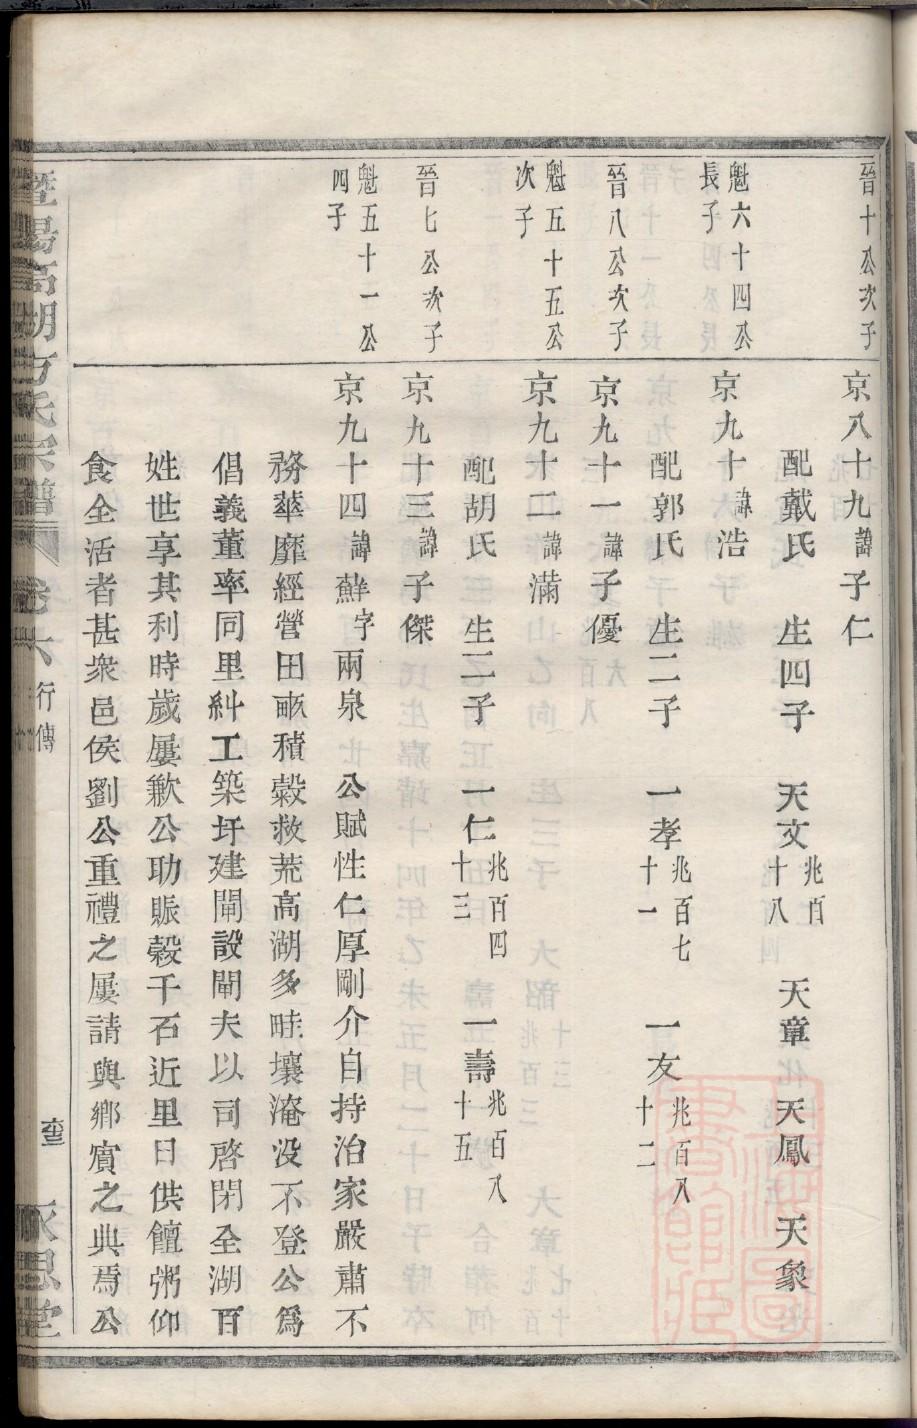 晉十公次子
京八十九諱子仁
配戴氏　生四子　天文兆百十八　天章　天鳳　天象
魁六十四公長子
京九十諱浩
配郭氏　生二子　一孝兆百七十一　一友兆百八十二
晉八公次子
京九十一諱子優
魁五十五公次子
京九十二諱滿
配胡氏　生二子　一仁兆百四十三　一壽兆百八十五
晉七公次子
京九十三諱子傑
魁五十一公四子
京九十四諱蘇字兩泉　公賦性仁厚剛介自持治家嚴肅不
務華靡經營田畝積穀救荒高湖多畦壤淹没不登公爲
倡義董率同里糾工築圩建閘設閘夫以司啓閉全湖百
姓世享其利時歲屢歉公助賑穀千石近里日供饘粥仰
食全活者甚衆邑侯劉公重禮之屢請與鄉賓之典焉公
暨陽高湖方氏宗譜　卷六　行傳